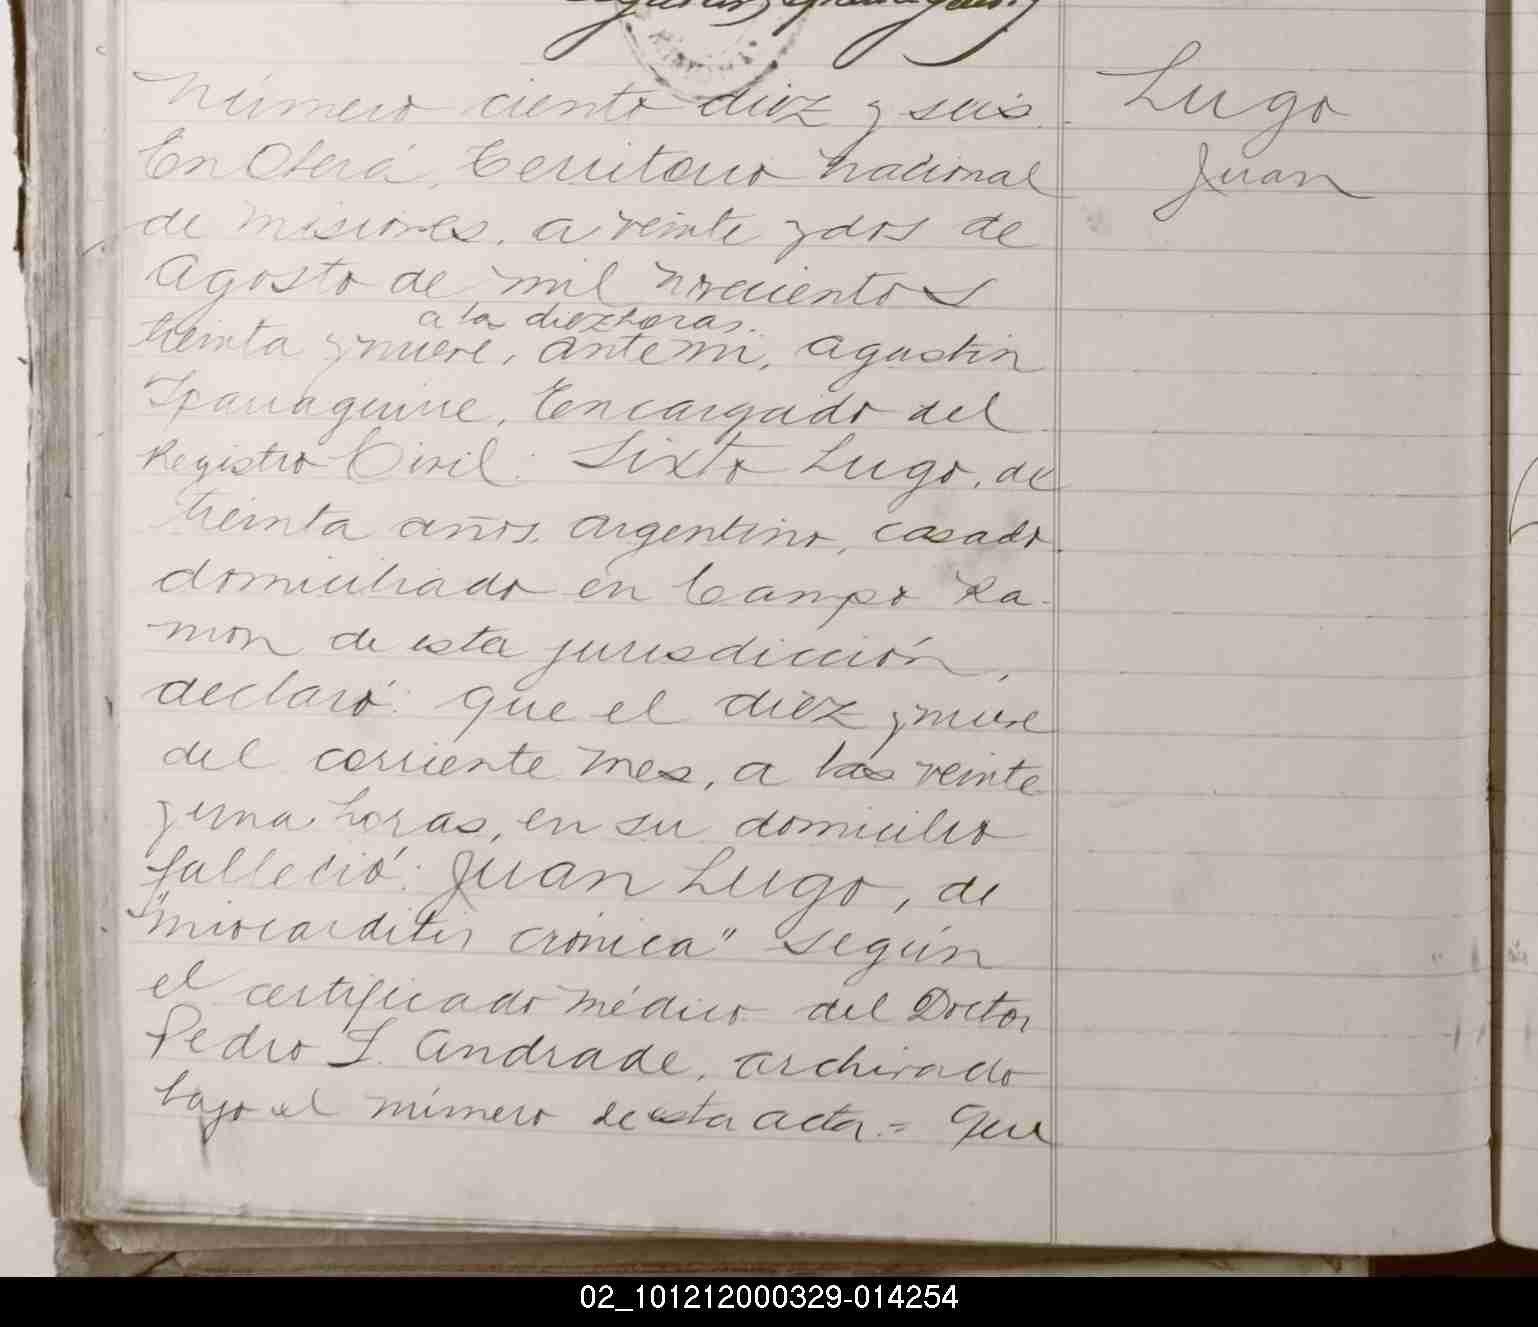 Número ciento diez y seis.
Lugo
Juan
En Oberá, Territorio Nacional
de Misiones, a veinte y dos de
Agosto de mil novecientos
a la diez horas.
treinta y nueve, ante mi, Agustin
Iparraguirre, Encargado del
Registro Civil: Sixto Lugo, de
treinta años, argentino, casado.
domiciliado en Campo Ra-
mon de esta jurisdicción,
declaró: Que el diez y nueve
del corriente mes, a las veinte
y una horas, en su domicilio
falleció: Juan Lugo, de
"miocarditis crónica" según
el certificado médico del Doctor
Pedro L. Andrade, archivado
bajo el número de esta acta.= Que
02_101212000329-014254